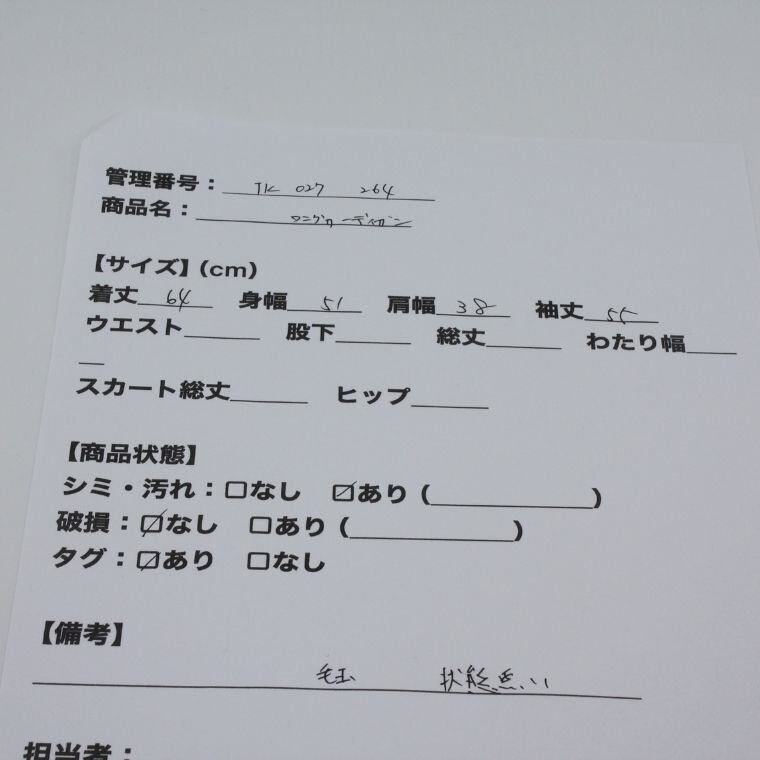 管理番号：TK 027 264
商品名：ロングカーディガン
【サイズ】(cm)
着丈 64 身幅 51 肩幅 38 袖丈 55
ウエスト 股下 総丈 わたり幅
スカート総丈 ヒップ
【商品状態】
シミ・汚れ：□なし ☑あり ( )
破損：☑なし □あり ( )
タグ：☑あり □なし
【備考】
毛玉 状態悪い
担当者：